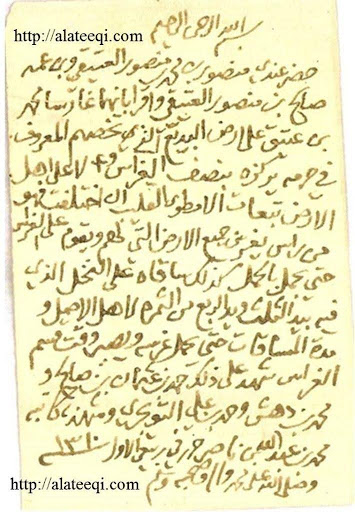 http://alateeqi.com
بسم الله الرحمن الرحيم
حضر عندي منصور بن محمد بن منصور العتيقي وبن عمه
صالح بن منصور العتيقي واقرا بانهما غارسا محمد
بن عتيق على ارض البديع الذي يخصهم المعروف
في حرمه بنصف الغراس لا على اهل
الارض تبعات
من راس يغرس جميع الارض التي ويقوم على الغراس
حتى يحمل كذلك ساقاه على النخل الذي
فيه بالثلث والربع من الثمره لاهل الاصل و
مدة المساقات حتى يحمل غرسه ويصير وقت قسم
الغراس شهد على ذلك حمد بن عثمان بن صالح و
محمد بن دهش وحمد بن علي التويجري وشهد به كاتبه
محمد بن عبد الله بن ناصر حرر في ربيع الاول ١٣١٠
وصلى الله على محمد واله وصحبه وسلم
http://alateeqi.com